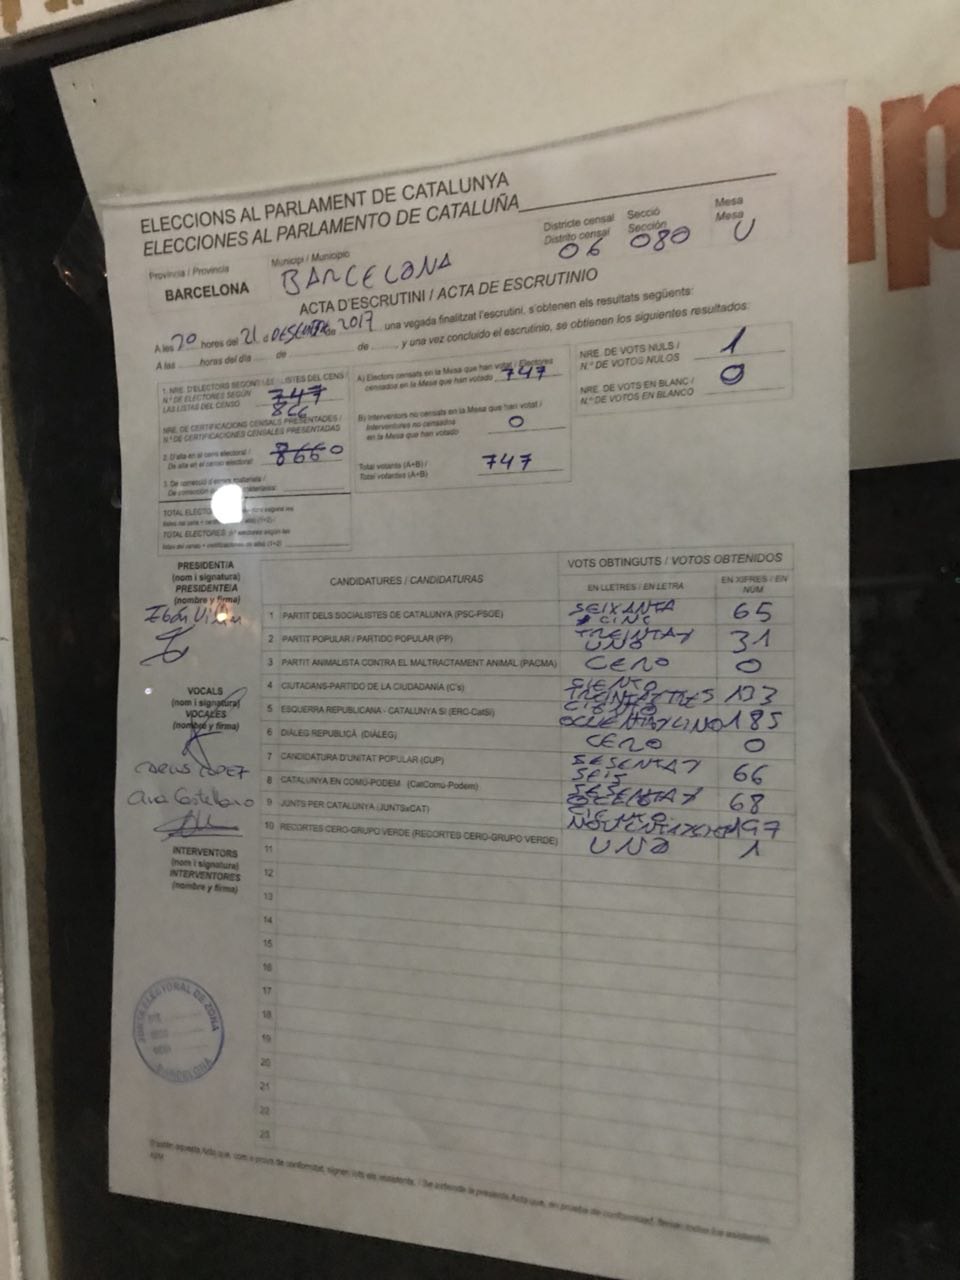 ELECCIONS AL PARLAMENT DE CATALUNYA
ELECCIONES AL PARLAMENTO DE CATALUÑA
Província / Provincia
BARCELONA
Municipi / Municipio
BARCELONA
Districte censal
Distrito censal
06
Secció
Sección
080
Mesa
Mesa
U
ACTA D'ESCRUTINI / ACTA DE ESCRUTINIO
A les 20 hores del 21 d de 2017, una vegada finalitzat l'escrutini, s'obtenen els resultats següents:
A las hores del día de de , y una vez concluido el escrutinio, se obtienen los siguientes resultados:
1. NRE. D'ELECTORS SEGONS LES LLISTES DEL CENS /
N.º DE ELECTORES SEGÚN
LAS LISTAS DEL CENSO
747
866
NRE. DE CERTIFICACIONS CENSALS PRESENTADES /
N.º DE CERTIFICACIONES CENSALES PRESENTADAS
2. D'alta en el cens electoral /
De alta en el censo electoral
866 0
3. De correcció d'errors materials /
De corrección materiales
TOTAL
TOTAL ELECTORES
A) Electors censats en la Mesa que han votat / Electores
censados en la Mesa que han votado
747
B) Interventors no censats en la Mesa que han votat /
Interventores no censados
en la Mesa que han votado
0
Total votants (A+B) /
Total votantes (A+B)
747
NRE. DE VOTS NULS /
N.º DE VOTOS NULOS
1
NRE. DE VOTS EN BLANC /
N.º DE VOTOS EN BLANCO
0
PRESIDENT/A
(nom i signatura)
PRESIDENTE/A
(nombre y firma)
VOCALS
(nom i signatura)
VOCALES
(nombre y firma)
CARLOS LOPEZ
Ana Castellano
INTERVENTORS
(nom i signatura)
INTERVENTORES
(nombre y firma)
CANDIDATURES / CANDIDATURAS
VOTS OBTINGUTS / VOTOS OBTENIDOS
EN LLETRES / EN LETRA
EN XIFRES / EN NÚM
1 PARTIT DELS SOCIALISTES DE CATALUNYA (PSC-PSOE) SEIXANTA CINC 65
2 PARTIT POPULAR / PARTIDO POPULAR (PP) TREINTA Y UNO 31
3 PARTIT ANIMALISTA CONTRA EL MALTRACTAMENT ANIMAL (PACMA) CERO 0
4 CIUTADANS-PARTIDO DE LA CIUDADANÍA (C's) SIENTO TREINTA Y TRES 133
5 ESQUERRA REPUBLICANA - CATALUNYA SÍ (ERC-CatSí) 185
6 DIÀLEG REPUBLICÀ (DIÀLEG) CERO 0
7 CANDIDATURA D'UNITAT POPULAR (CUP) SESENTA Y SEIS 66
8 CATALUNYA EN COMÚ-PODEM (CatComú-Podem) SESENTA Y OCHO 68
9 JUNTS PER CATALUNYA (JUNTSxCAT) 197
10 RECORTES CERO-GRUPO VERDE (RECORTES CERO-GRUPO VERDE) UNO 1
11
12
13
14
15
16
17
18
19
20
21
22
23
JUNTA ELECTORAL DE ZONA
BARCELONA